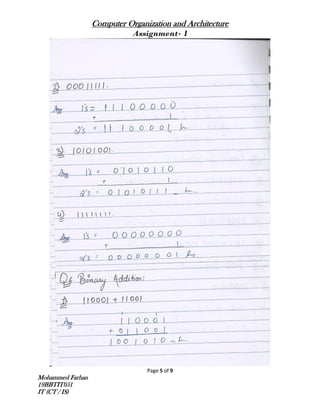 Computer Organization and Architecture
Assignment- 1
2) 00011111.
Ans 1's = 11100000
+ 1
2's = 11100001
3) 10101001.
Ans 1's = 01010110
+ 1
2's = 01010111
4) 11111111.
Ans 1's = 00000000
+ 1
2's = 00000001
Q6 Binary Addition:
1) 110001 + 11001
Ans 110001
+ 011001
1001010
Page 5 of 9
Mohammed Farhan
19BBTIT051
IT (CT / IS)